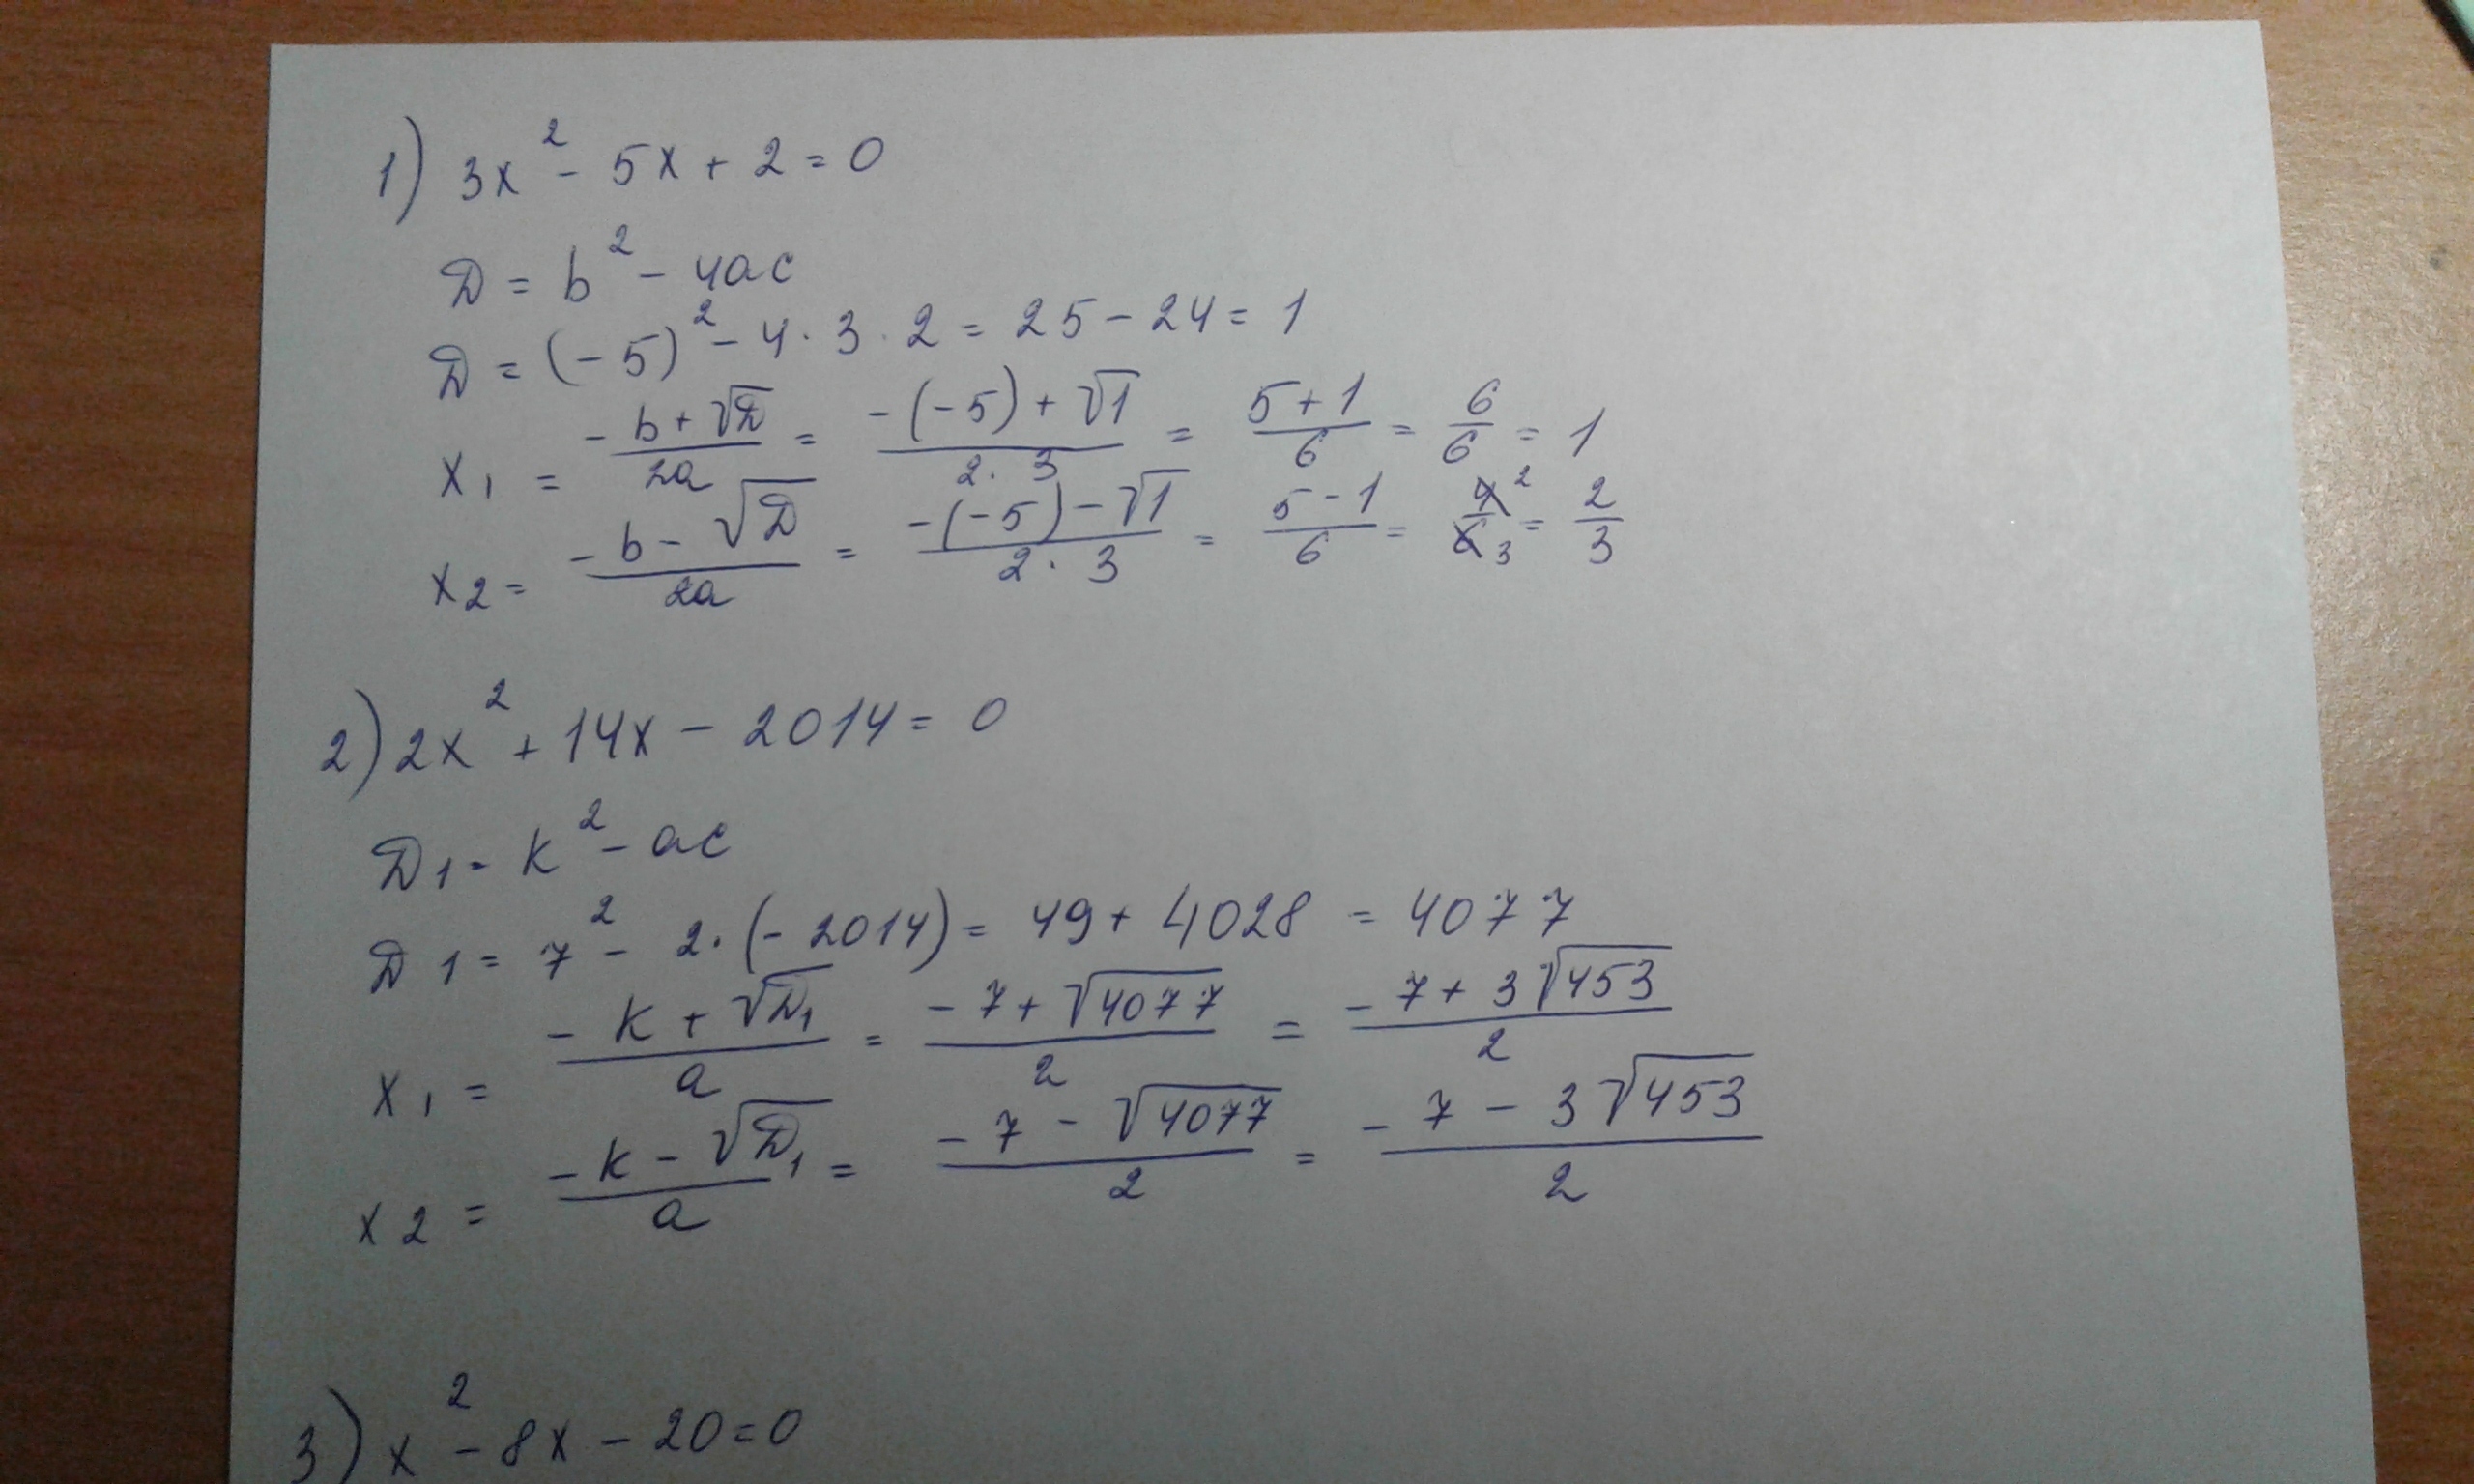 1) 3x² - 5x + 2 = 0
D = b² - 4ac
D = (-5)² - 4 · 3 · 2 = 25 - 24 = 1
x₁ = (-b + √D)/(2a) = (-(-5) + √1)/(2 · 3) = (5 + 1)/6 = 6/6 = 1
x₂ = (-b - √D)/(2a) = (-(-5) - √1)/(2 · 3) = (5 - 1)/6 = 4 2/6 3 = 2/3
2) 2x² + 14x - 2014 = 0
D₁ = k² - ac
D1 = 7² - 2 · (-2014) = 49 + 4028 = 4077
x₁ = (-k + √D₁)/a = (-7 + √4077)/2 = (-7 + 3√453)/2
x₂ = (-k - √D₁)/a = (-7 - √4077)/2 = (-7 - 3√453)/2
3) x² - 8x - 20 = 0